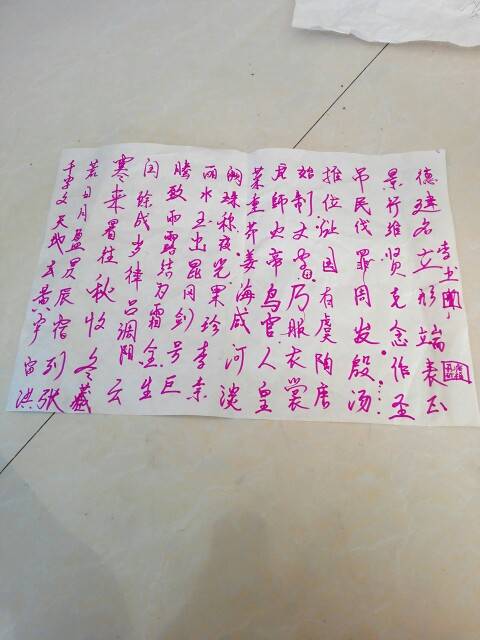 千字文天地玄黄宇宙洪
荒日月盈昃辰宿列张
寒来暑往秋收冬藏
闰餘成岁律吕调阳云
腾致雨露结为霜金生
丽水玉出昆冈剑号巨
阙珠称夜光果珍李柰
菜重芥姜海咸河淡
龙師火帝鸟官人皇
始制文字乃服衣裳
推位让国有虞陶唐
吊民伐罪周发殷汤
景行维贤克念作圣
德建名立形端表正